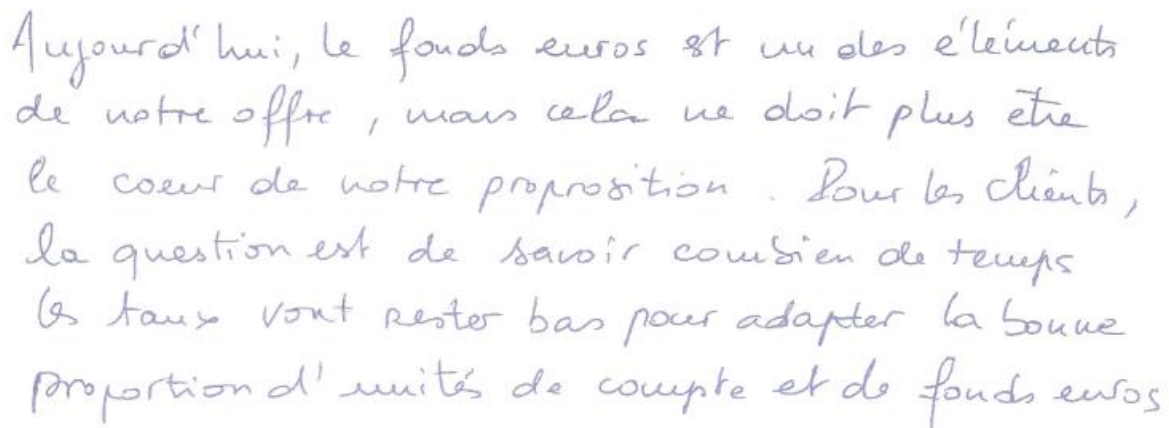 Aujourd'hui, le fonds euros est un des éléments
de notre offre, mais cela ne doit plus être
le coeur de notre proprosition. Pour les clients,
la question est de savoir combien de temps
les taux vont rester bas pour adapter la bonne
proportion d'unités de compte et de fonds euros